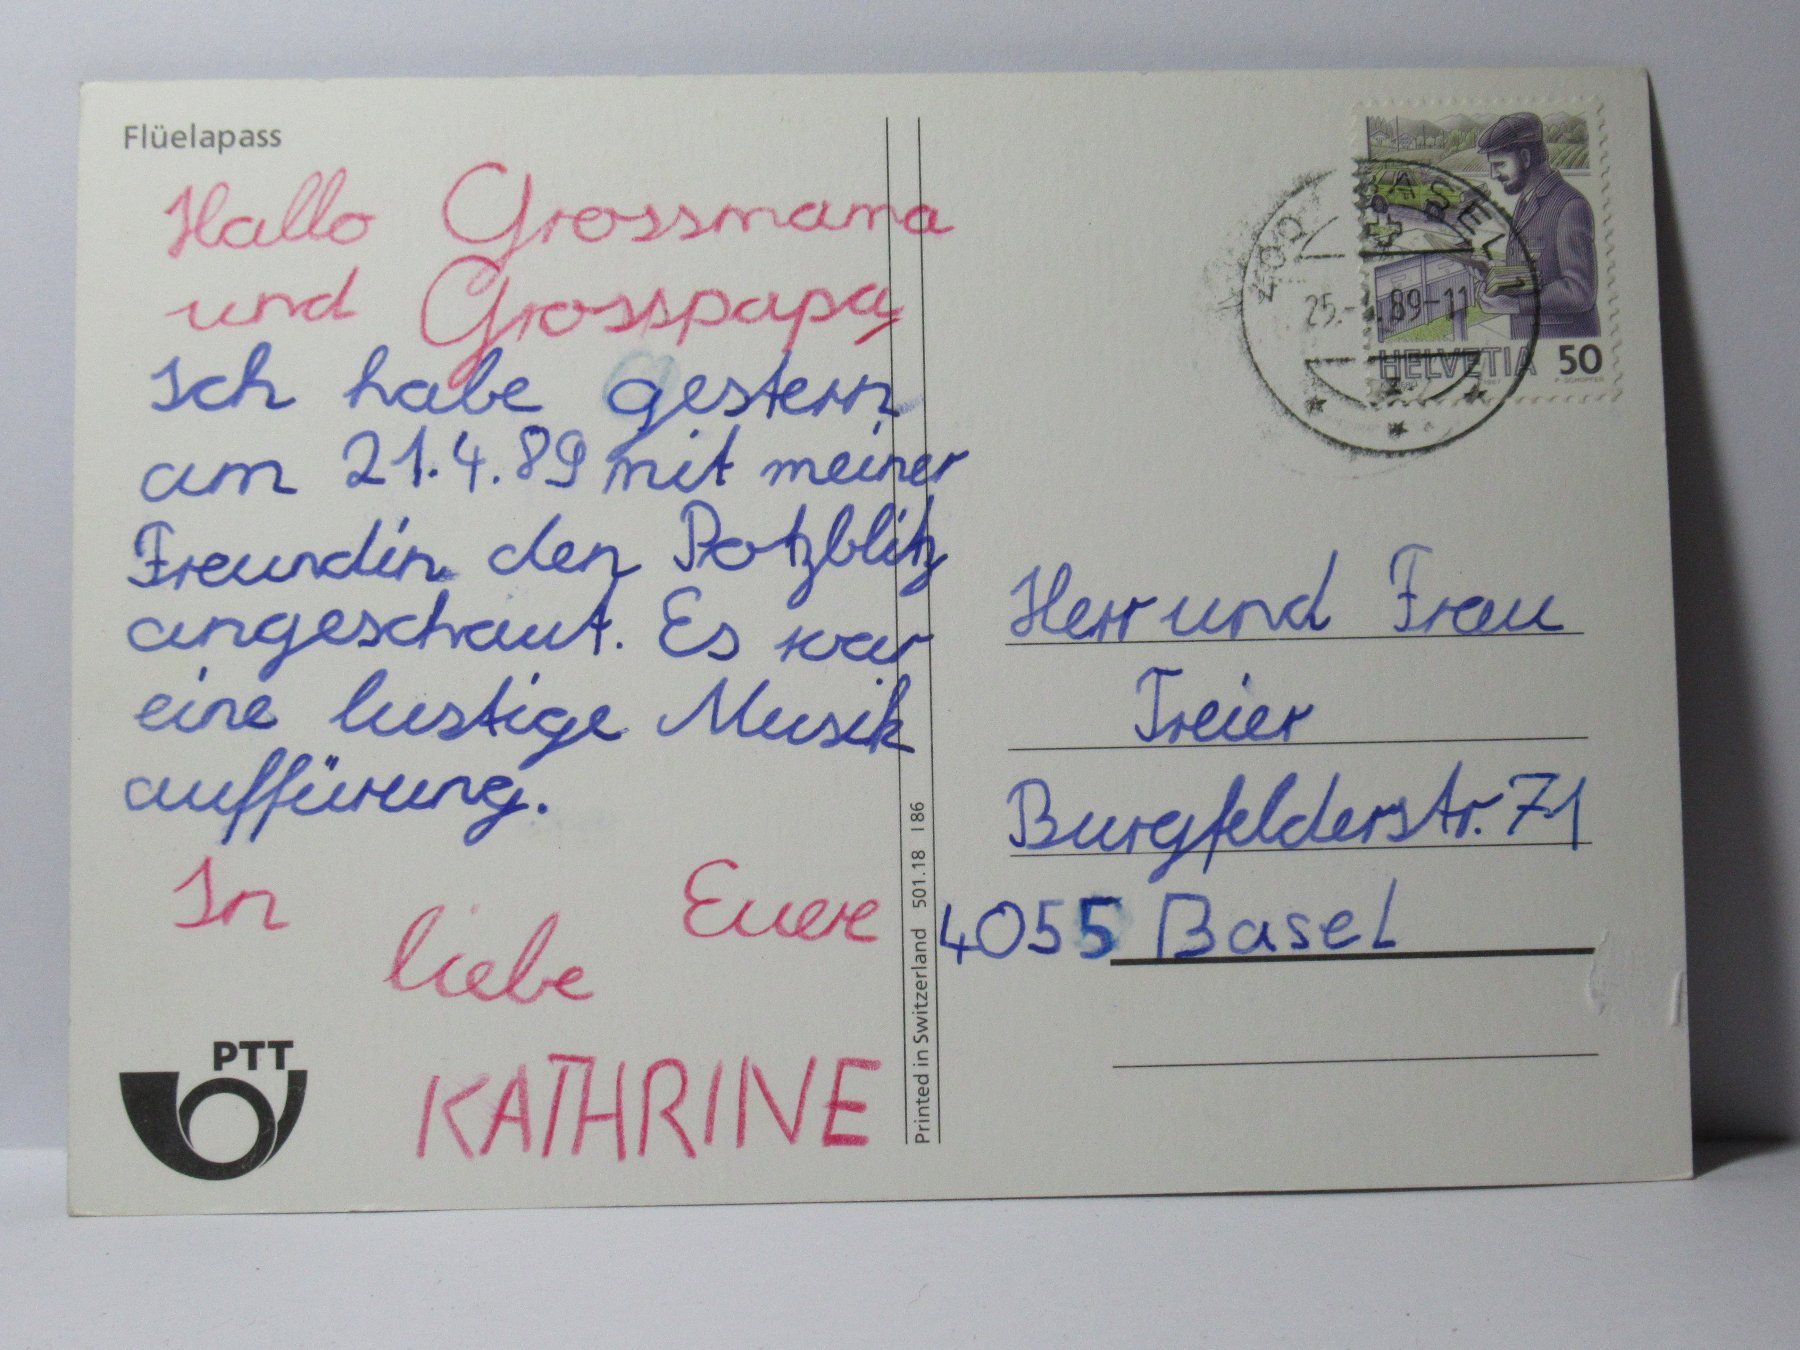 Flüelapass
Hallo Grossmama
und Grosspapa,
Ich habe gestern
am 21.4.89 mit meiner
Freundin den Potzblitz
angeschaut. Es war
eine lustige Musik
auffürung.
In
liebe
Euere
KATHRINE
PTT
Printed in Switzerland 501.18 186
BASEL
25.- .89-11
HELVETIA 50
Herr und Frau
Freier
Burgfelderstr. 71
4055 Basel